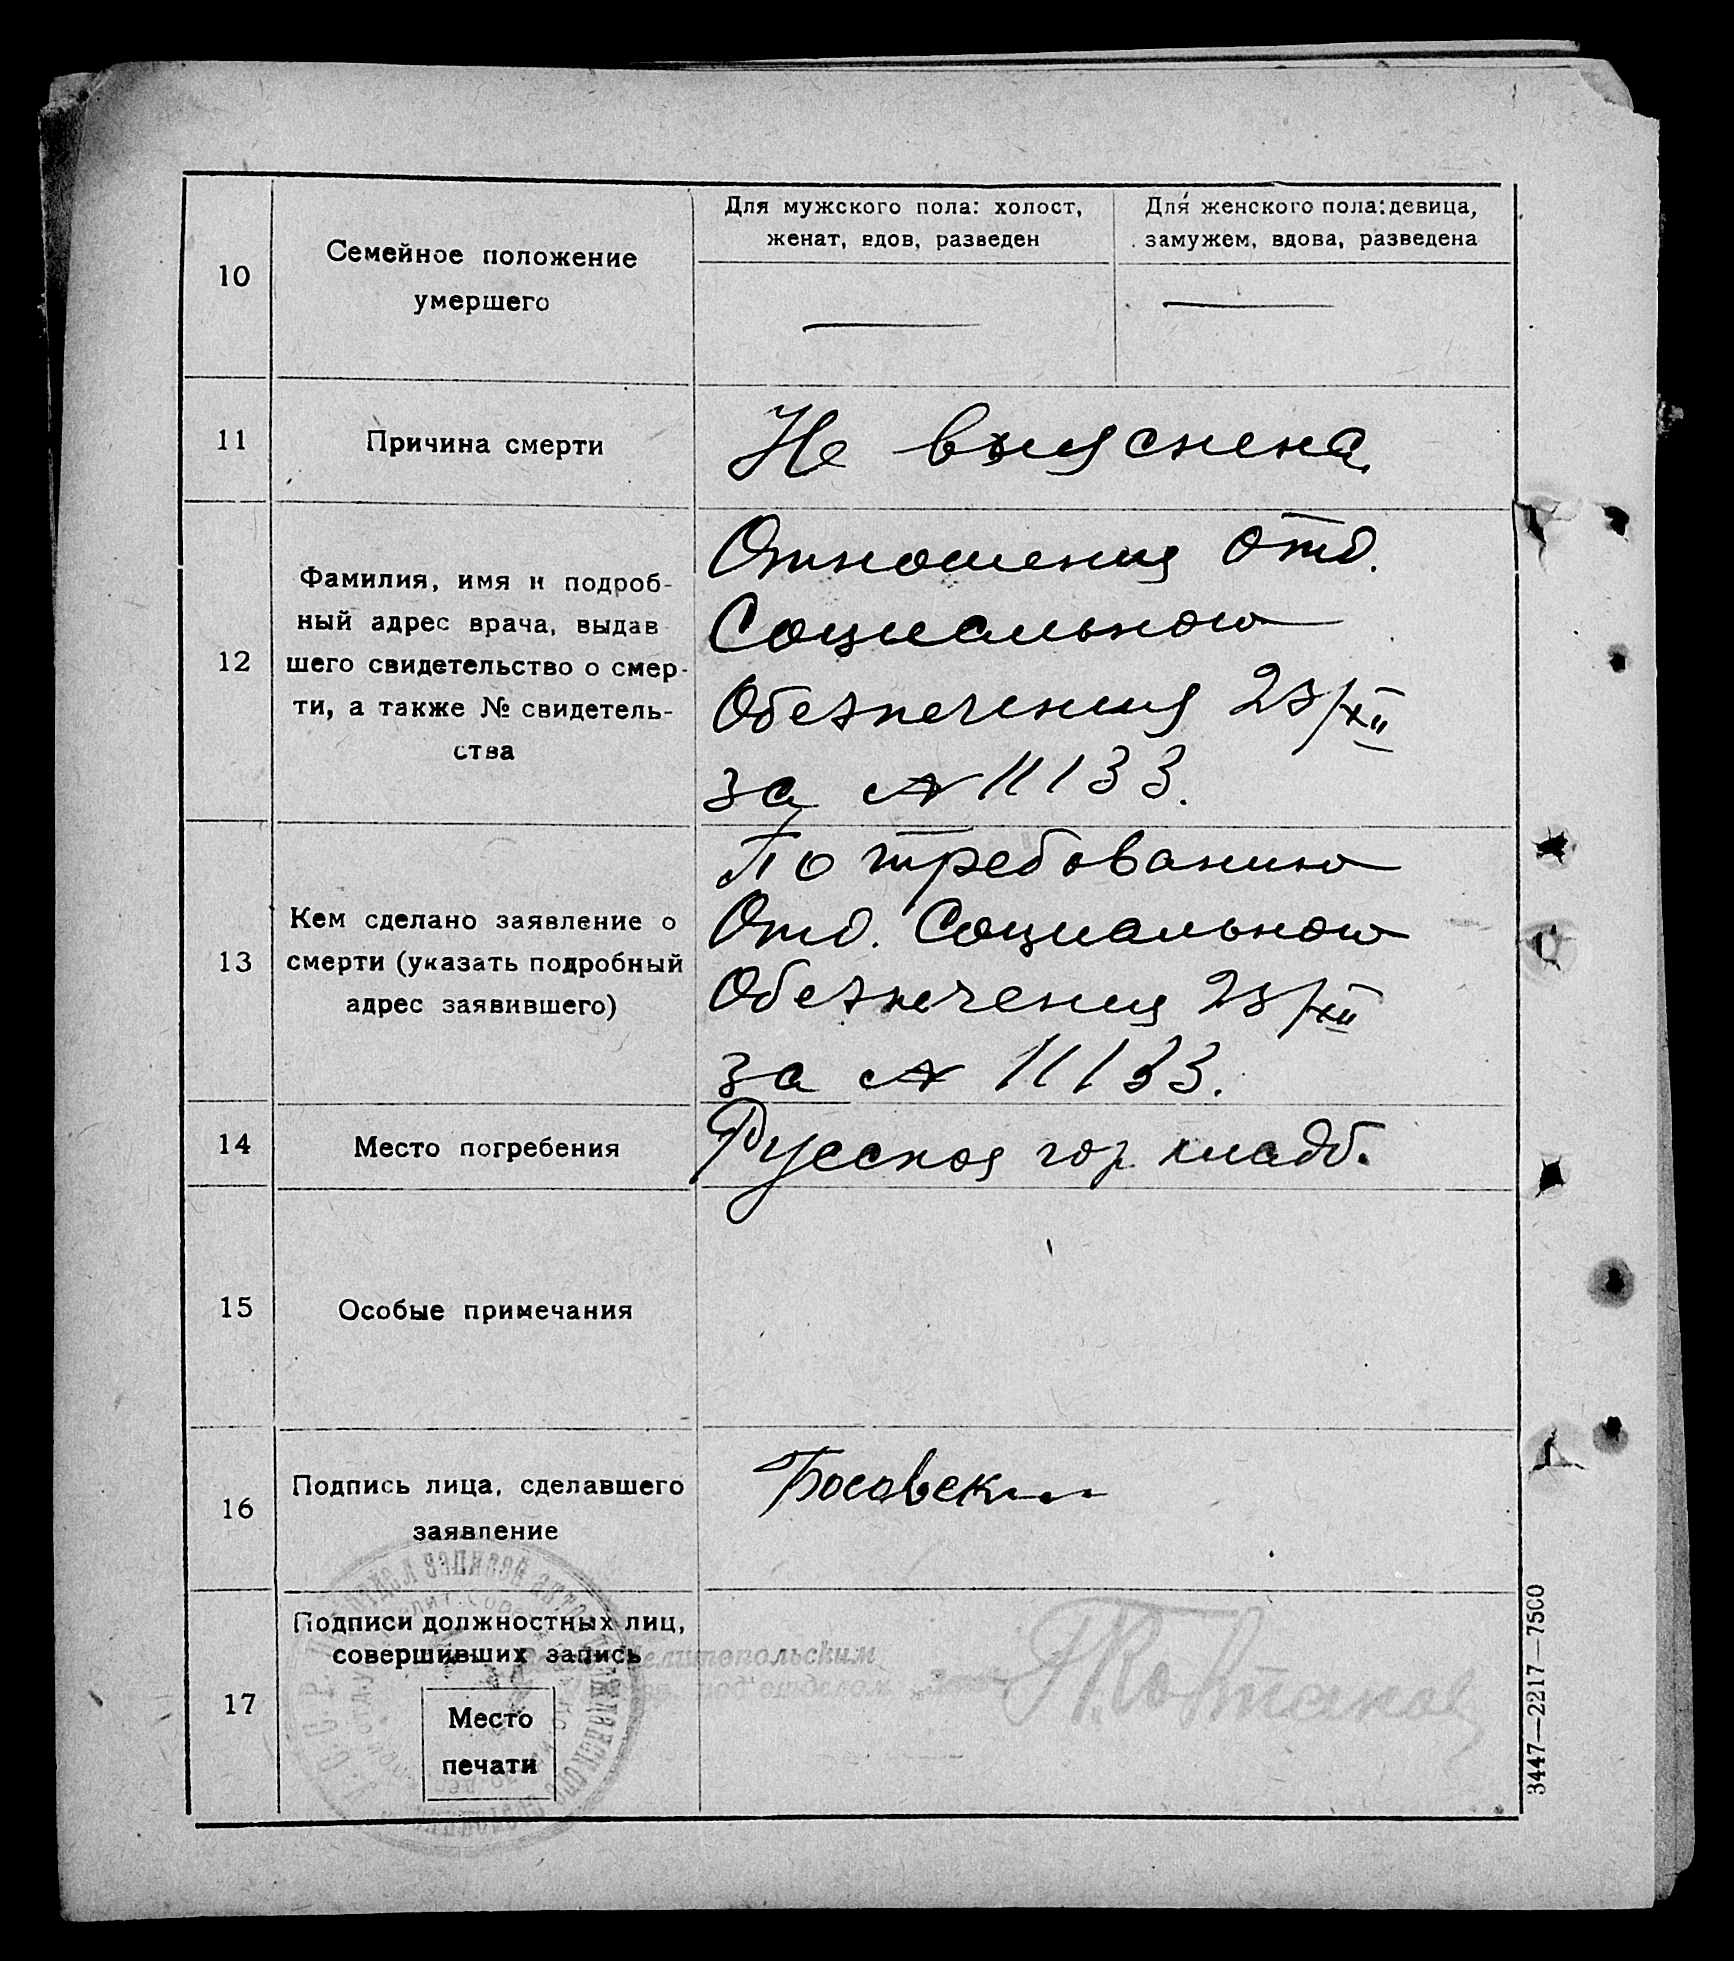 10
Семейное положение
умершего
Для мужского пола: холост,
женат, вдов, разведен
Для женского пола: девица,
замужем, вдова, разведена
11
Причина смерти
Не выяснена
12
Фамилия, имя и подроб-
ный адрес врача, выдав
шего свидетельство о смер-
ти, а также № свидетель-
ства
Отношения Отд.
Социальною
Обезпечения 23/XII
за № 11133.
13
Кем сделано заявление о
смерти (указать подробный
адрес заявившего)
По требованию
Отд. Социальною
Обезпечения 23/XII
за № 11133.
14
Место погребения
Русское гор кладб.
15
Особые примечания
16
Подпись лица, сделавшего
заявление
Босовский
17
Подписи должностных лиц,
совершивших запись
Место
печати
под'отделом
3447—2217—7500